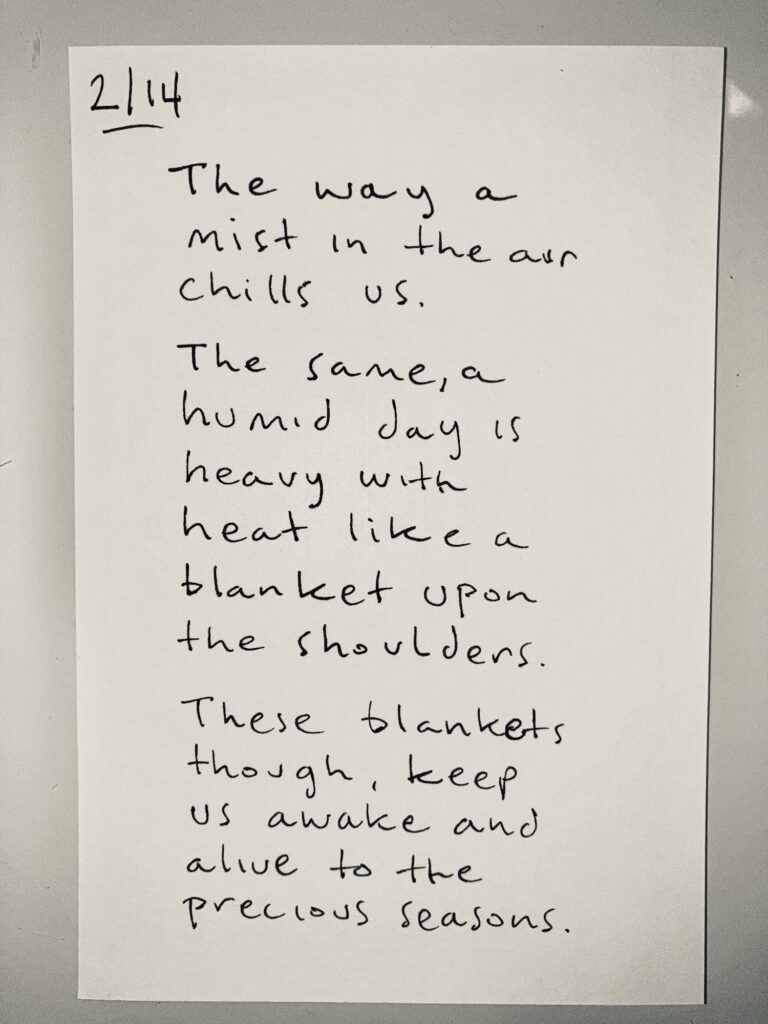 2/14
The way a
mist in the air
chills us.
The same, a
humid day is
heavy with
heat like a
blanket upon
the shoulders.
These blankets
though, keep
us awake and
alive to the
precious seasons.